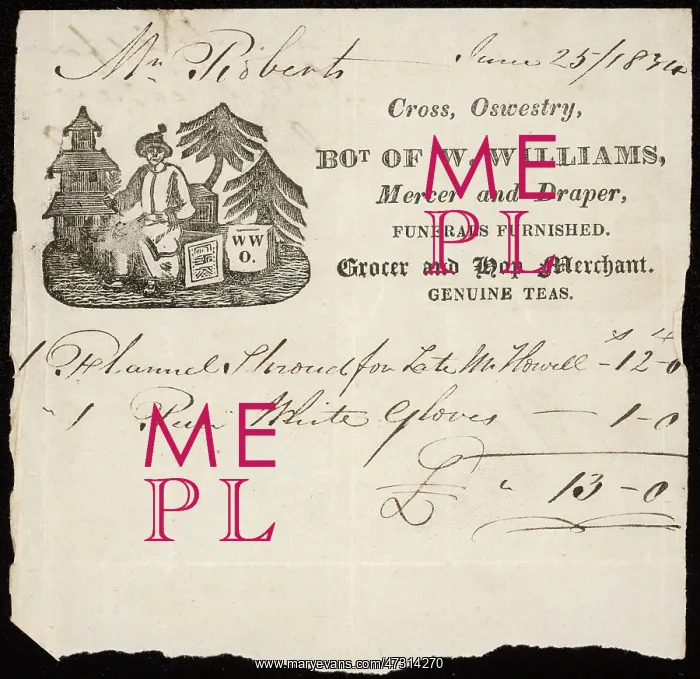 Mr Roberts June 25/1834
Cross, Oswestry,
BOT OF W. WILLIAMS,
Mercer and Draper,
FUNERALS FURNISHED.
Grocer and Hop Merchant.
GENUINE TEAS.
WW
O.
s d
1 Flannel Shroud for Late Mr Howell - 12 - 0
" 1 Pair White Gloves — 1 - 0
£ " 13 - 0
ME
PL
ME
PL
www.maryevans.com/47314270